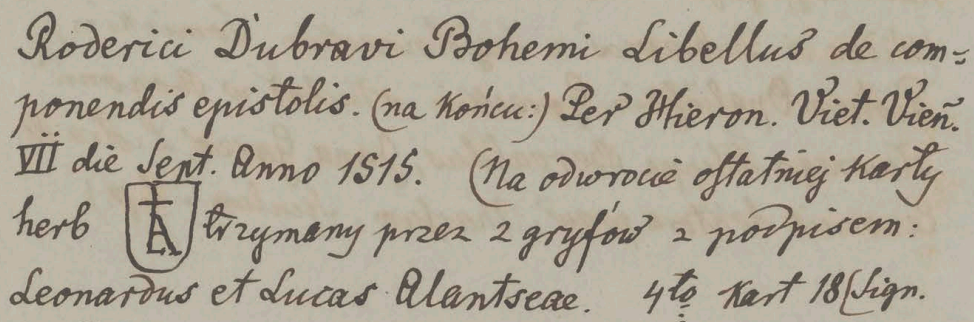 Roderici Dubravi Bohemi Libellus de com=
ponendis epistolis. (na końcu:) Per Hieron. Viet. Vien̄.
VII die Sept. Anno 1515. (Na odwrocie ostatniej karty
herb trzymany przez 2 gryfów z podpisem:
Leonardus et Lucas Alantseae. 4to kart 18 (Sign.